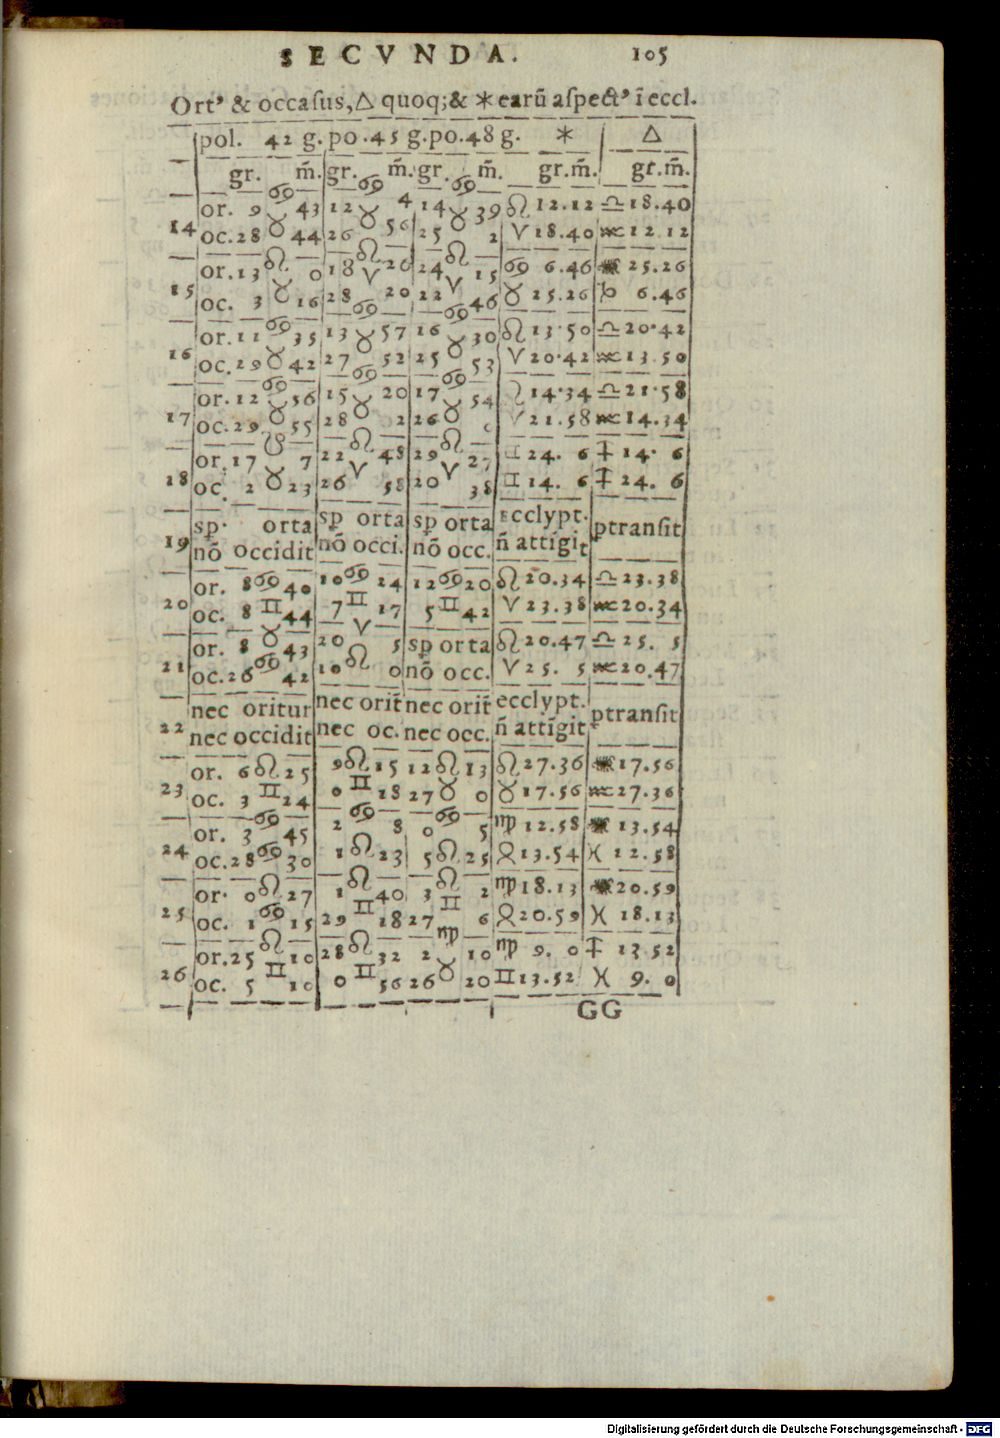 SECVNDA. 105
Ort⁹ & occaſus, △ quoq;& ⚹ earū aſpect⁹ ī eccl.
pol. 42 g. po .45 g. po.48 g. ⚹ △
gr. m̄. gr. m̄. gr. m̄. gr.m̄. gr.m̄.
14 or. 9 ♋ 43 12 ♋ 4 14 ♋ 39 ♌ 12.12 ♎ 18.40
oc.28 ♉ 44 26 ♉ 56 25 ♉ 2 ♈ 18.40 ♒ 12.12
15 or.13 ♌ 0 18 ♌ 26 24 ♌ 15 ♋ 6.46 25.26
oc. 3 ♉ 16 28 ♈ 20 22 ♈ 46 ♉ 25.26 ♑ 6.46
16 or.11 ♋ 35 13 ♋ 57 16 ♋ 30 ♌ 13.50 ♎ 20.42
oc.29 ♉ 42 27 ♉ 52 25 ♉ 53 ♈ 20.42 ♒ 13.50
17 or.12 ♋ 56 15 ♋ 20 17 ♋ 54 ♌ 14.34 ♎ 21.58
oc.29. ♉ 55 28 ♉ 2 26 ♉ ♈ 21.58 ♒ 14.34
18 or.17 ♌ 7 22 ♌ 48 29 ♌ 27 ♊ 24. 6 ♐ 14. 6
oc. 2 ♉ 23 26 ♈ 58 20 ♈ 38 ♊ 14. 6 ♐ 24. 6
19 sp. orta sp orta sp orta ecclypt. ptranſit
nō occidit nō occi. nō occ. n̄ attīgit
20 or. 8 ♋ 40 10 ♋ 24 12 ♋ 20 ♌ 20.34 ♎ 23.38
oc. 8 ♊ 44 7 ♊ 17 5 ♊ 42 ♈ 23.38 ♒ 20.34
21 or. 8 ♉ 43 20 ♈ 5 sp orta ♌ 20.47 ♎ 25. 5
oc.26 ♋ 42 10 ♌ 0 nō occ. ♈ 25. 5 ♒ 20.47
22 nec oritur nec orit̄ nec orit̄ ecclypt. ptranſit
nec occidit nec oc. nec occ. n̄ attīgit
23 or. 6 ♌ 25 9 ♌ 15 12 ♌ 13 ♌ 27.36 17.56
oc. 3 ♊ 24 0 ♊ 18 27 ♉ 0 ♉ 17.56 ♒ 27.36
24 or. 3 ♋ 45 2 ♋ 8 0 ♋ 5 ♍ 12.58 13.54
oc.28 ♋ 30 1 ♌ 23 5 ♌ 25 13.54 ♓ 12.58
25 or. 0 ♌ 27 1 ♌ 40 3 ♌ 2 ♍ 18.13 20.59
oc. 1 ♋ 15 29 ♊ 18 27 ♊ 6 20.59 ♓ 18.13
26 or.25 ♌ 10 28 ♌ 32 2 ♍ 10 ♍ 9. 0 ♐ 13 52
oc. 5 ♊ 10 0 ♊ 56 26 ♉ 20 ♊ 13.52 ♓ 9. 0
GG
Digitalisierung gefördert durch die Deutsche Forschungsgemeinschaft - DFG